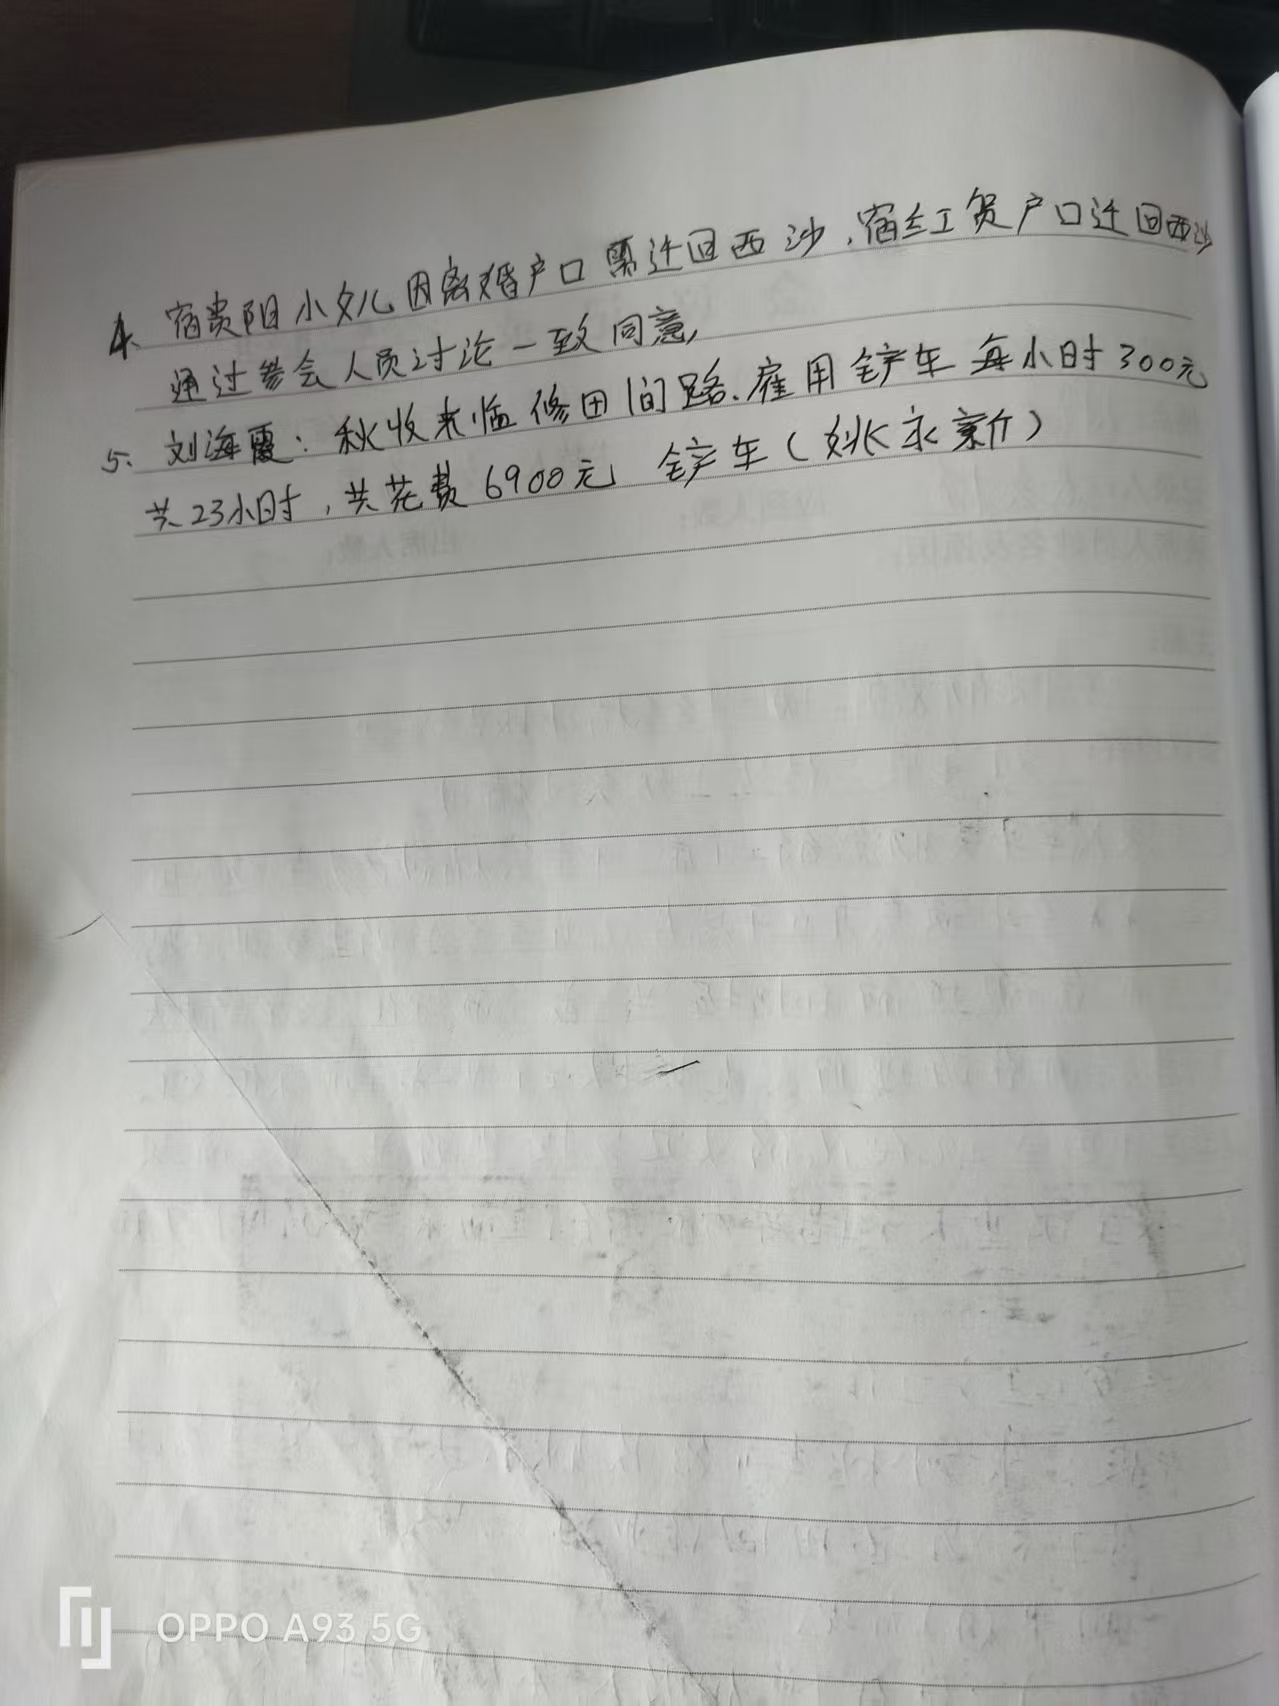 4、宿贵阳小女儿因离婚户口需迁回西沙，宿红贺户口迁回西沙
通过参会人员讨论一致同意，
5、刘海霞：秋收来临修田间路、雇用铲车每小时300元
共23小时，共花费6900元 铲车（姚永新）
OPPO A93 5G